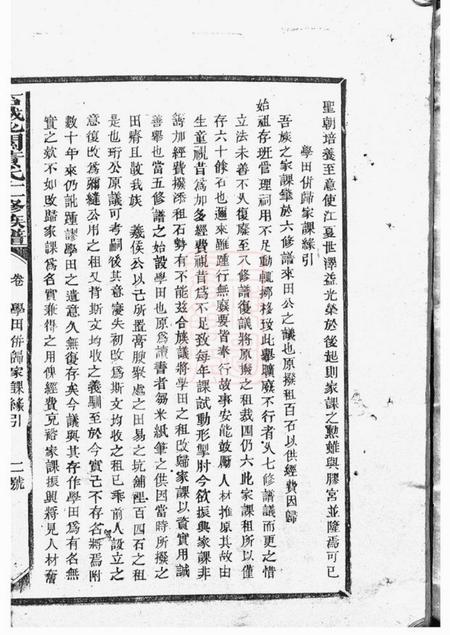 聖朝培養至意使江夏世澤益光榮於後起則家課之勲雖與膠宮並隆焉可已
學田併歸家課緣引
吾族之家課肇於六修譜來田公之議也原撥租百石以供經費因歸
始祖存班管理祠用不足動輒挪移致此舉曠廢不行者久七修譜議而更之惜
立法未善不久復廢至八修譜復議將原撥之租裁回仍六此家課租所以僅
存六十餘石也邇來雖踵行無廢要皆奉行故事安能鼓勵人材推原其故由
生童視昔為加多經費視昔為不足致每年課試動形掣肘今欲振興家課非
籌加經費撥添租石勢有不能玆合族議將學田之租改歸家課以資實用誠
善舉也當五修譜之始設學田也原為讀書者每米紙筆之供因當時所撥之
田瘠且敧我族 義侯公以己所置膏腴聚處之田易之坑鋪裡一百四石之租
是也珩公原議可考嗣後其意寖失初改為斯文均收之租已乖前人設立之
意復改為彌縫公用之租又背斯文均收之義馴至於今實已不存名將焉附
數十年來仍訛踵謬學田之遺意久無復存矣今議與其存作學田為有名無
實之欵不如改歸家課為名實兼得之用俾經費充裕家課振興將見人材蓄
氏 修族譜
卷 學田併歸家課緣引 二號